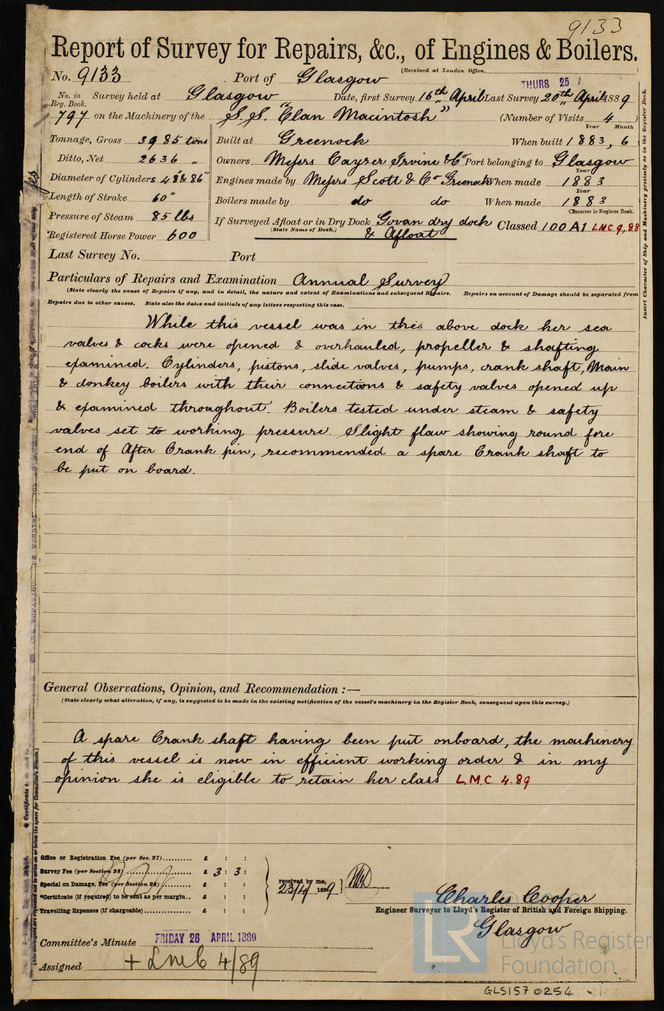 9133
Report of Survey for Repairs, &c., of Engines & Boilers.
(Received at London Office,
THURS 25
No. 9133 Port of Glasgow
No. in Reg. Book. Survey held at Glasgow Date, first Survey 16th April Last Survey 20th April 1889
797 on the Machinery of the S.S. "Clan Macintosh" (Number of Visits 4)
Tonnage, Gross 3985 tons Built at Greenock When built Year 1883, Month 6
Ditto, Net 2636 " Owners Messrs Cayzer Irvine & Co Port belonging to Glasgow
Diameter of Cylinders 48 & 86" Engines made by Messrs Scott & Co Greenock When made Year 1883
Length of Stroke 60" Boilers made by do do When made Year 1883
Pressure of Steam 85 lbs If Surveyed Afloat or in Dry Dock Govan dry dock & Afloat Classed 100A1 LMC 9,88
(State Name of Dock.)
Character in Register Book.
Registered Horse Power 600
Last Survey No. Port
Particulars of Repairs and Examination Annual Survey
(State clearly the cause of Repairs if any, and in detail, the nature and extent of Examinations and subsequent Repairs. Repairs on account of Damage should be separated from
Repairs due to other causes. State also the dates and initials of any letters respecting this case.
While this vessel was in the above dock her sea
valves & cocks were opened & overhauled, propeller & shafting
examined. Cylinders, pistons, slide valves, pumps, crank shaft, Main
& donkey boilers with their connections & safety valves opened up
& examined throughout. Boilers tested under steam & safety
valves set to working pressure. Slight flaw showing round fore
end of After Crank pin, recommended a spare Crank shaft to
be put on board.
General Observations, Opinion, and Recommendation :—
(State clearly what alteration, if any, is suggested to be made in the existing notification of the vessel's machinery in the Register Book, consequent upon this survey.)
A spare Crank shaft having been put onboard, the machinery
of this vessel is now in efficient working order & in my
opinion she is eligible to retain her class L.M.C. 4.89
Office or Registration Fee (per Sec. 27) £ : :
Survey Fee (per Section 28) £ 3 : 3 :
Special on Damage, Fee (per Section 28) £ : :
*Certificate (if required) to be sent as per margin £ : :
Travelling Expenses (if chargeable) £ : :
received by me,
23/4/1889
Charles Cooper
Engineer Surveyor to Lloyd's Register of British and Foreign Shipping.
Glasgow
Committee's Minute FRIDAY 26 APRIL 1889
Assigned + LMC 4/89
LR
Lloyd's Register
Foundation
GLS157 0254
Insert Character of Ship and Machinery precisely as in the Register Book